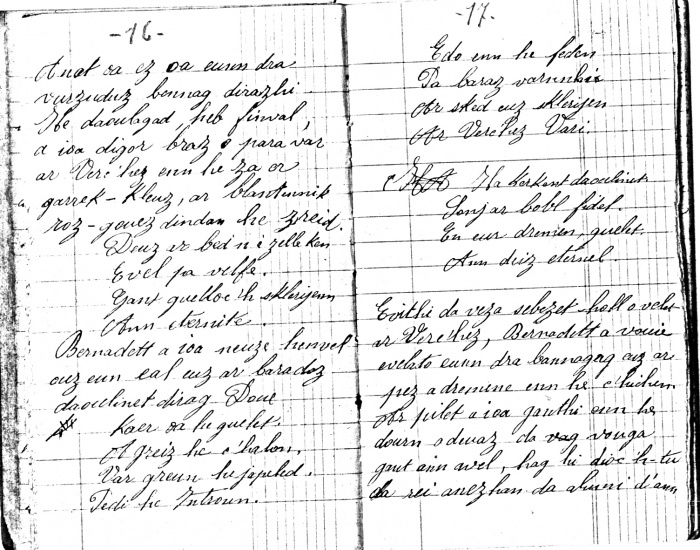 -16-
Anat oa ez oa eunn dra
vurzuduz bennag dirazhi
He daoulagad, heb finval,
a ioa digor braz o para var
ar Verc'hez enn he za or
garrek-kleuz, ar blantennik
roz-gouez dindan he zreid.
Douz ar bed n i zelle ken
Evel pa velfe.
Gant guelloc'h sklerijenn
Ann eternité.
Bernadett a ioa neuze henvel
ouz eun eal euz ar baradoz
daoulinet dirag Doue
Kaer oa he guelet.
A greiz he c'halon,
Var greun he japeled.
Pedi he Introun.
-17-
Edo enn he feden
Pa baraz varnhhi
Ar sked euz sklerijen
Ar Verc'hez Vari.
Ha kerkent daoulinet
Sonj ar bobl fidel.
En eur dremen, guelet
Ann deiz eternel.
Evithi da veza sebezet holl o velet
ar Verc'hez, Bernadett a vouie
evelato eunn dra bannagag euz ar
pez a dremene enn he c'hichen
Ar pilet a ioa ganthi enn he
dourn o deuaz da vouga
gant ann avel, hag hi disc'h-tu
da rei anezhan da alumi d'ann